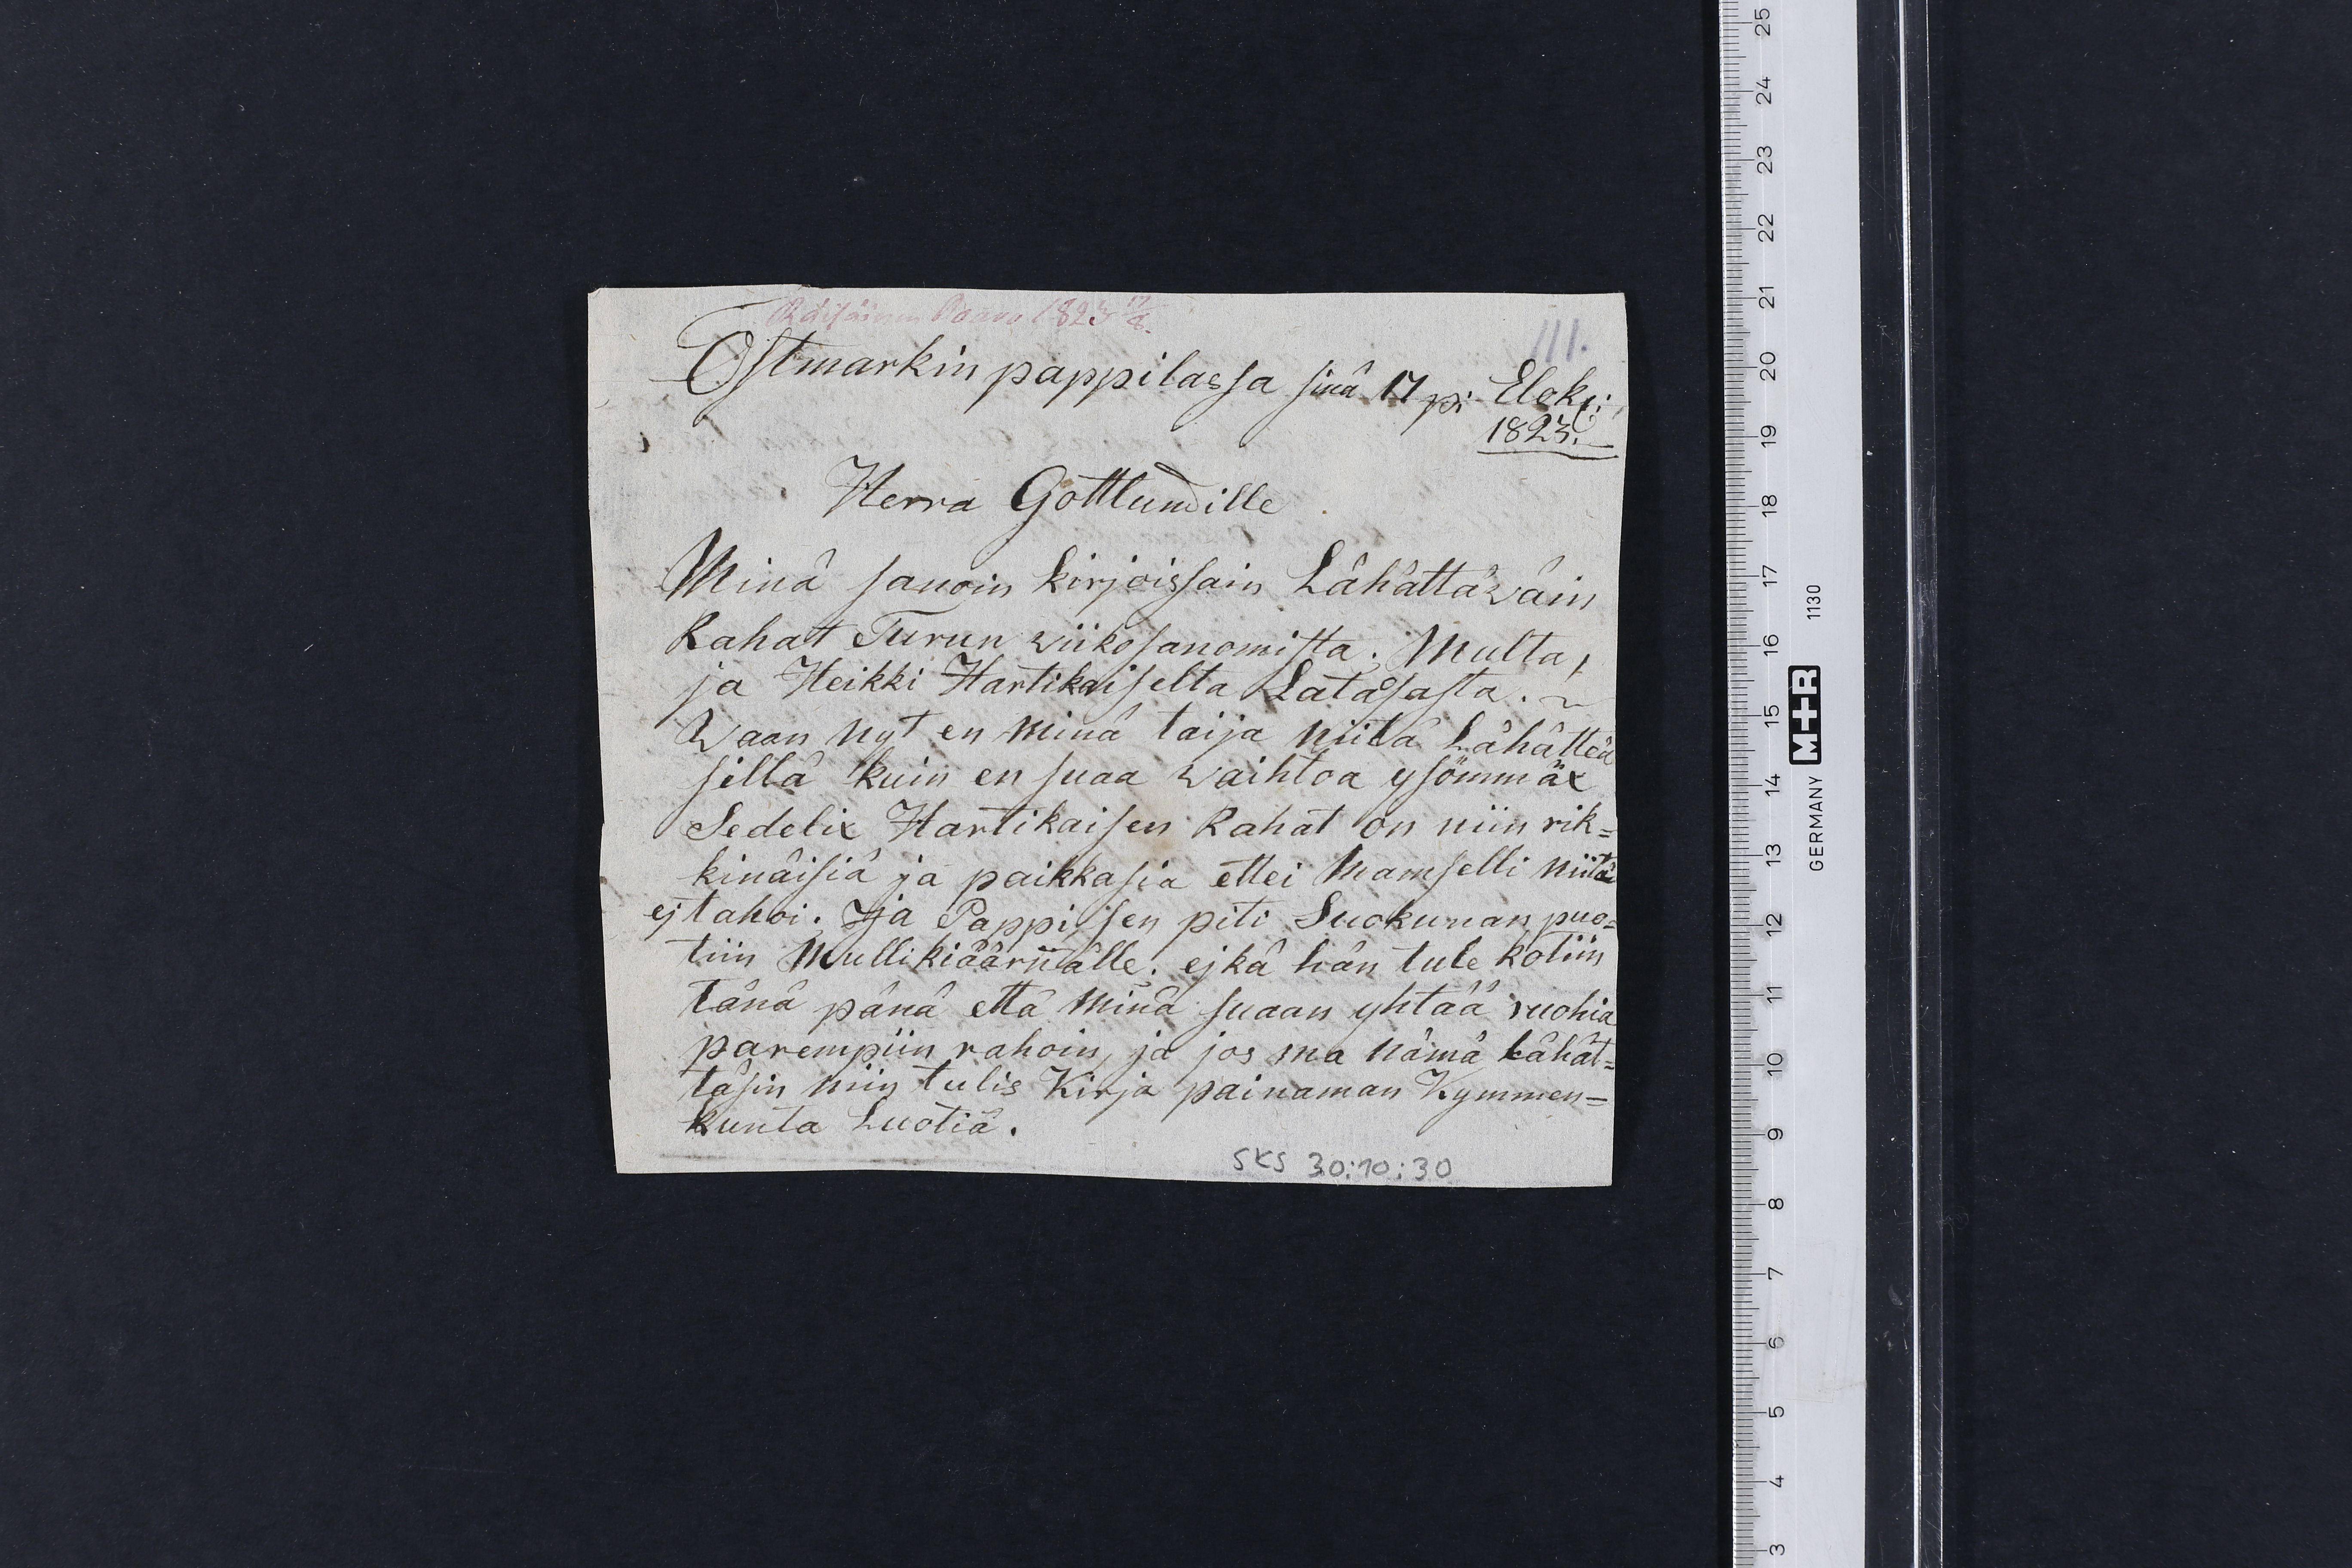 Räisäinen Paavo 1823 17/8.
111.
Ostmarkin pappilassa sinä 17 pi Elok:
1823.
Herra Gottlundille
Minä sanoin kirjoissain Lähättäwäin
Rahat Turun wiikosanomista. Multa,
ja Heikki Hartikaiselta Lataŝasta.
Waan nyt en minä taija niitä Lähätteä
sillä kuin en suaa waihtoa ysömmäx
Sedelix Hartikaisen Rahat on niin rik=
kinäisiä ja paikkasia ettei Mamselli niitä
ej tahoi. Ja Pappi sen piti Suokunan puo=
tiin Mullikiäärnälle. ejkä hän tule kotiin
tänä pänä että minä suaan yhtää ruohia
parempiin rahoin, ja jos ma nämä Lähät=
täsin niin tulis Kirja painaman Kymmen=
kunta Luotiä.
SKS 30:10:30
25
24
23
22
21
20
19
18
17
16
15
14
13
12
11
10
9
8
7
6
5
4
3
GERMANY M+R 1130